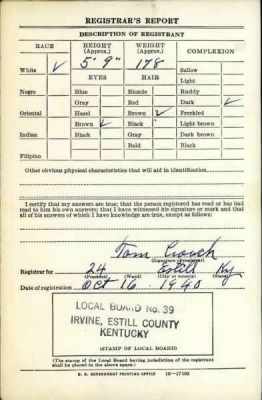 REGISTRAR'S REPORT
DESCRIPTION OF REGISTRANT
RACE HEIGHT (Approx.) WEIGHT (Approx.) COMPLEXION
5' 9" 178
White ✓ EYES HAIR Sallow
Light
Negro Blue Blonde Ruddy
Gray Red Dark ✓
Oriental Hazel Brown ✓ Freckled
Brown ✓ Black Light brown
Indian Black Gray Dark brown
Bald Black
Filipino
Other obvious physical characteristics that will aid in identification
I certify that my answers are true; that the person registered has read or has had
read to him his own answers; that I have witnessed his signature or mark and that
all of his answers of which I have knowledge are true, except as follows:
Tom Crouch
(Signature of registrar)
Registrar for 24 Estill Ky
(Precinct) (Ward) (City or county) (State)
Date of registration Oct 16 1940
LOCAL BOARD NO. 39
IRVINE, ESTILL COUNTY
KENTUCKY
(STAMP OF LOCAL BOARD)
(The stamp of the Local Board having jurisdiction of the registrant
shall be placed in the above space.)
U. S. GOVERNMENT PRINTING OFFICE 16—17105